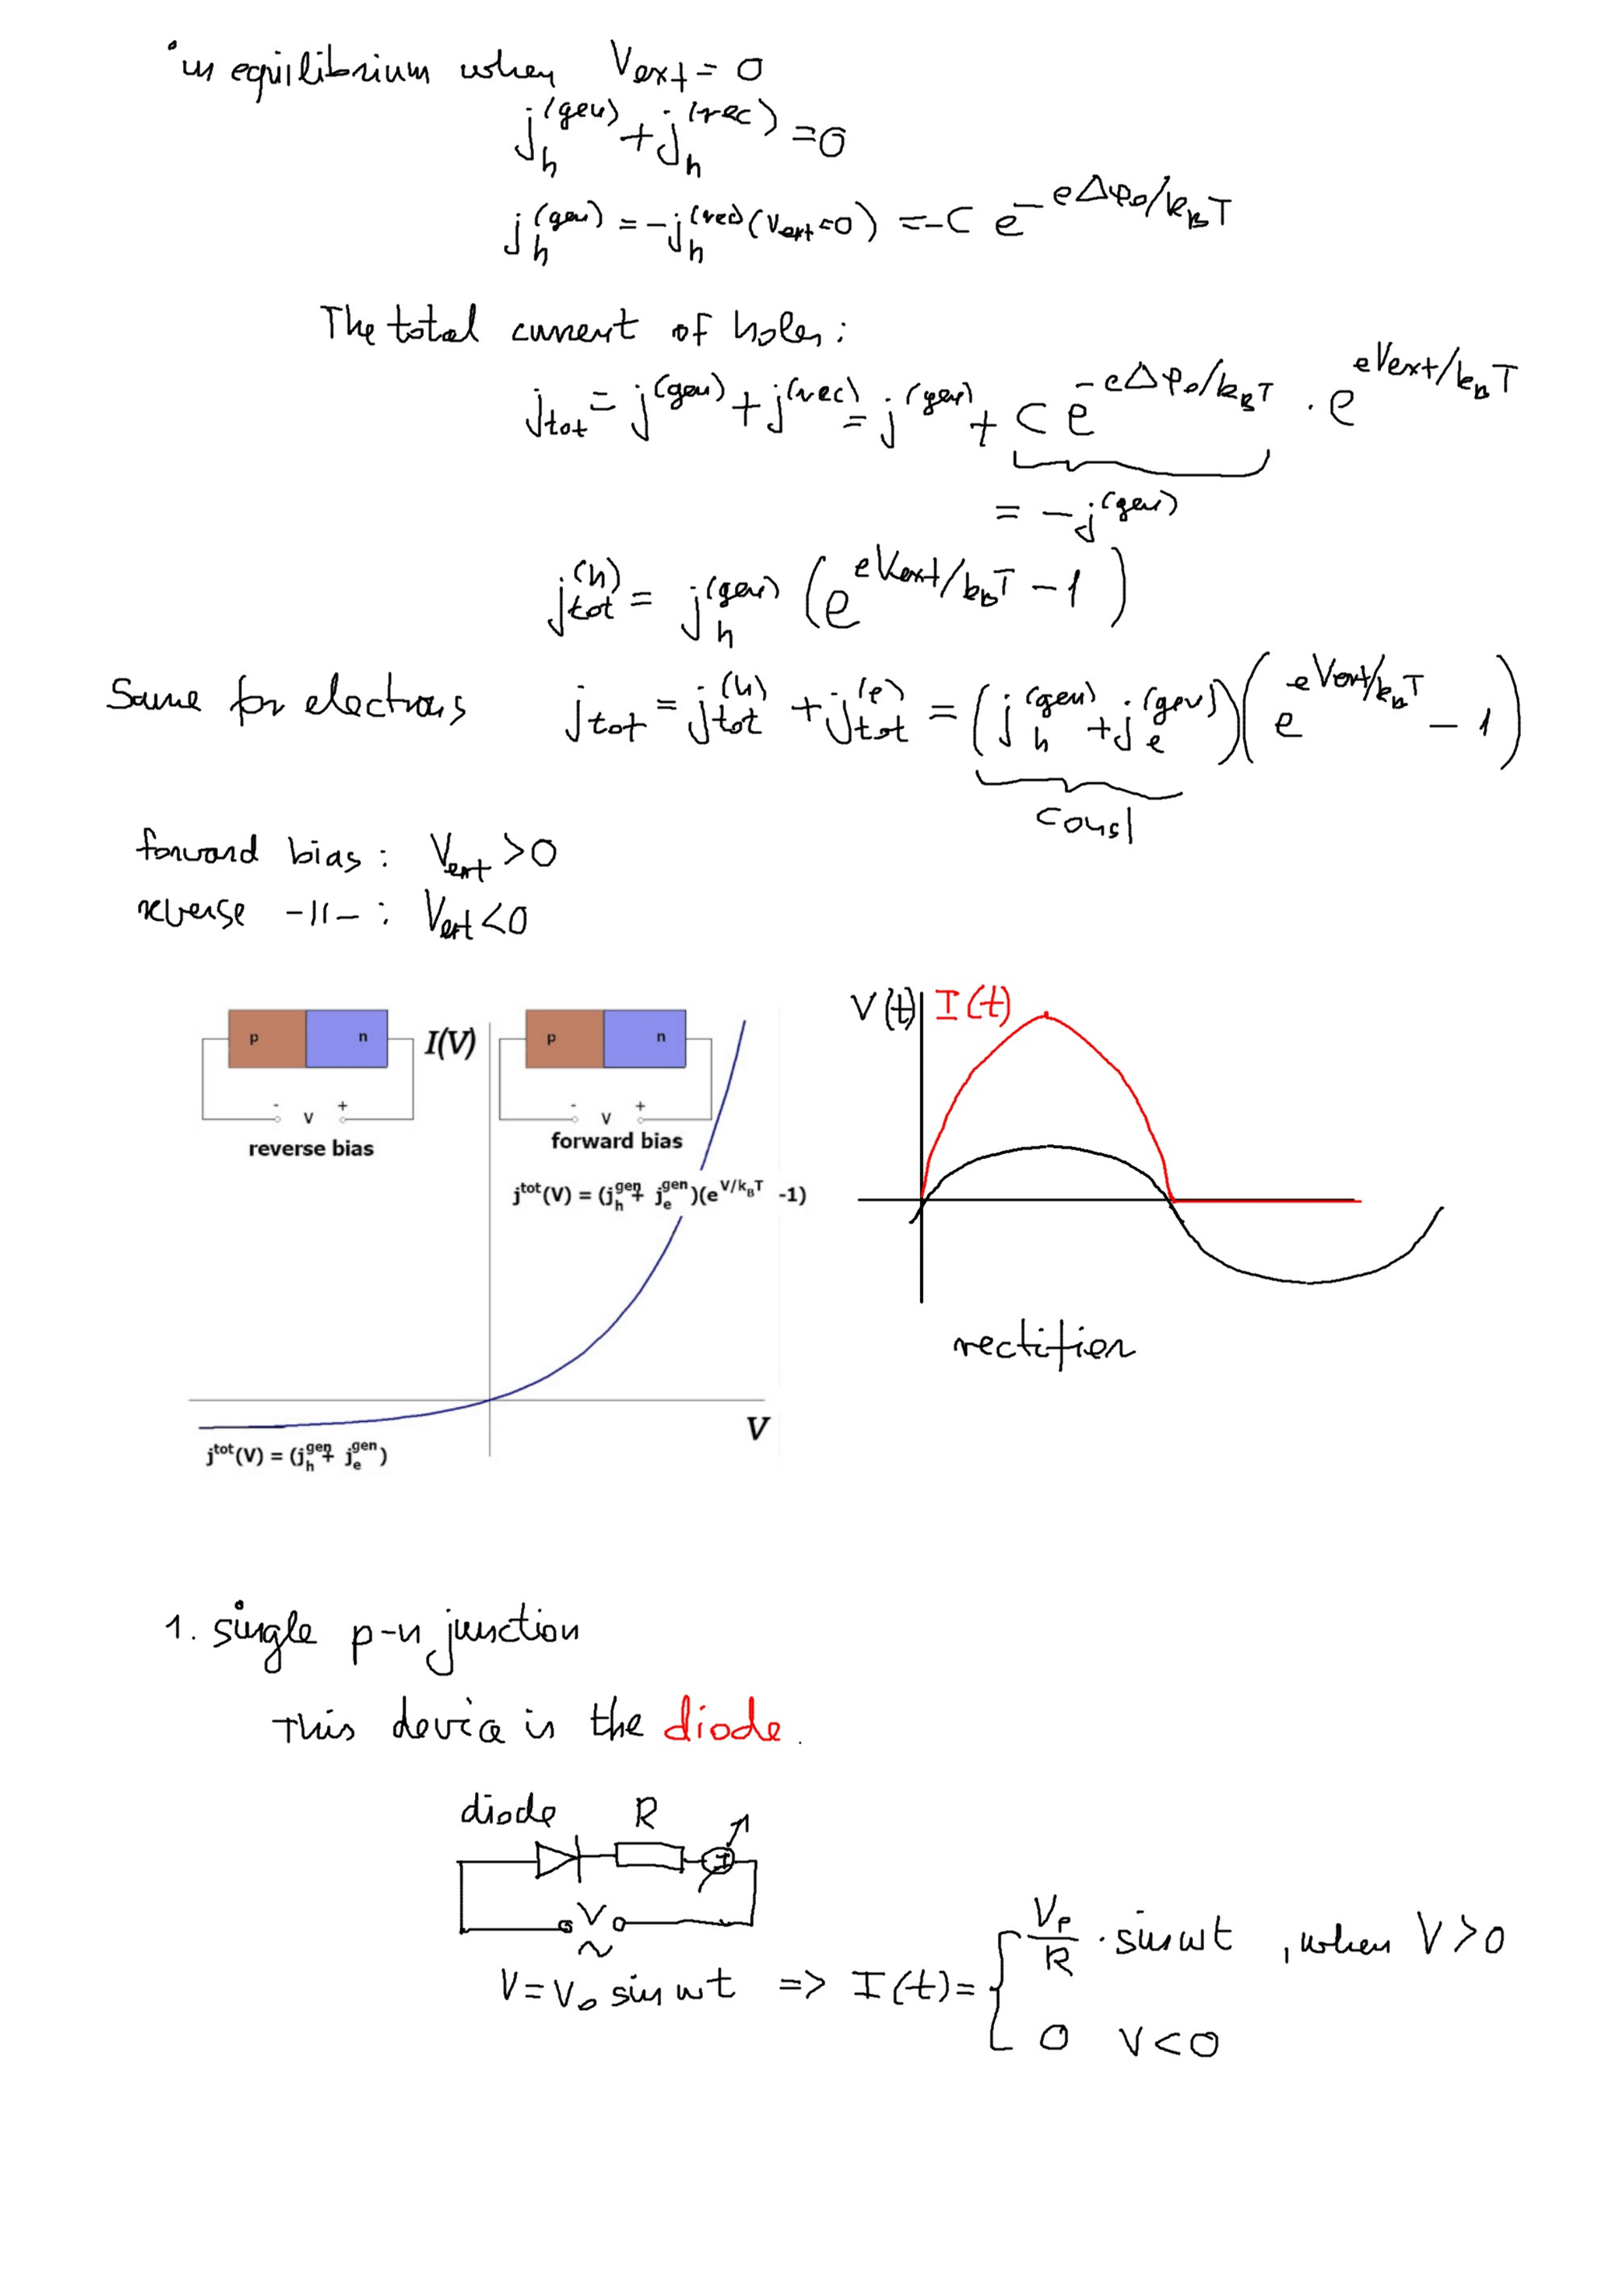 in equilibrium when V_ext = 0
j_h^(gen) + j_h^(rec) = 0
j_h^(gen) = -j_h^(rec) (V_ext=0) = -C e^{-eΔφ_0/k_BT}
The total current of holes:
j_tot = j^(gen) + j^(rec) = j^(gen) + C e^{-eΔφ_0/k_BT} · e^{eV_ext/k_BT}
= -j^(gen)
j_tot^(h) = j_h^(gen) (e^{eV_ext/k_BT} - 1)
Same for electrons j_tot = j_tot^(h) + j_tot^(e) = (j_h^(gen) + j_e^(gen)) (e^{eV_ext/k_BT} - 1)
const
forward bias: V_ext > 0
reverse -11-: V_ext < 0
V(t) I(t)
p n I(V) p n
- V + - V +
reverse bias forward bias
j^tot(V) = (j_h^gen + j_e^gen)(e^{V/k_BT} -1)
rectifier
V
j^tot(V) = (j_h^gen + j_e^gen)
1. single p-n junction
This device is the diode.
diode R
I
V
~
V = V_0 sin ωt => I(t) = { V_0/R · sin ωt , when V > 0
0 V < 0